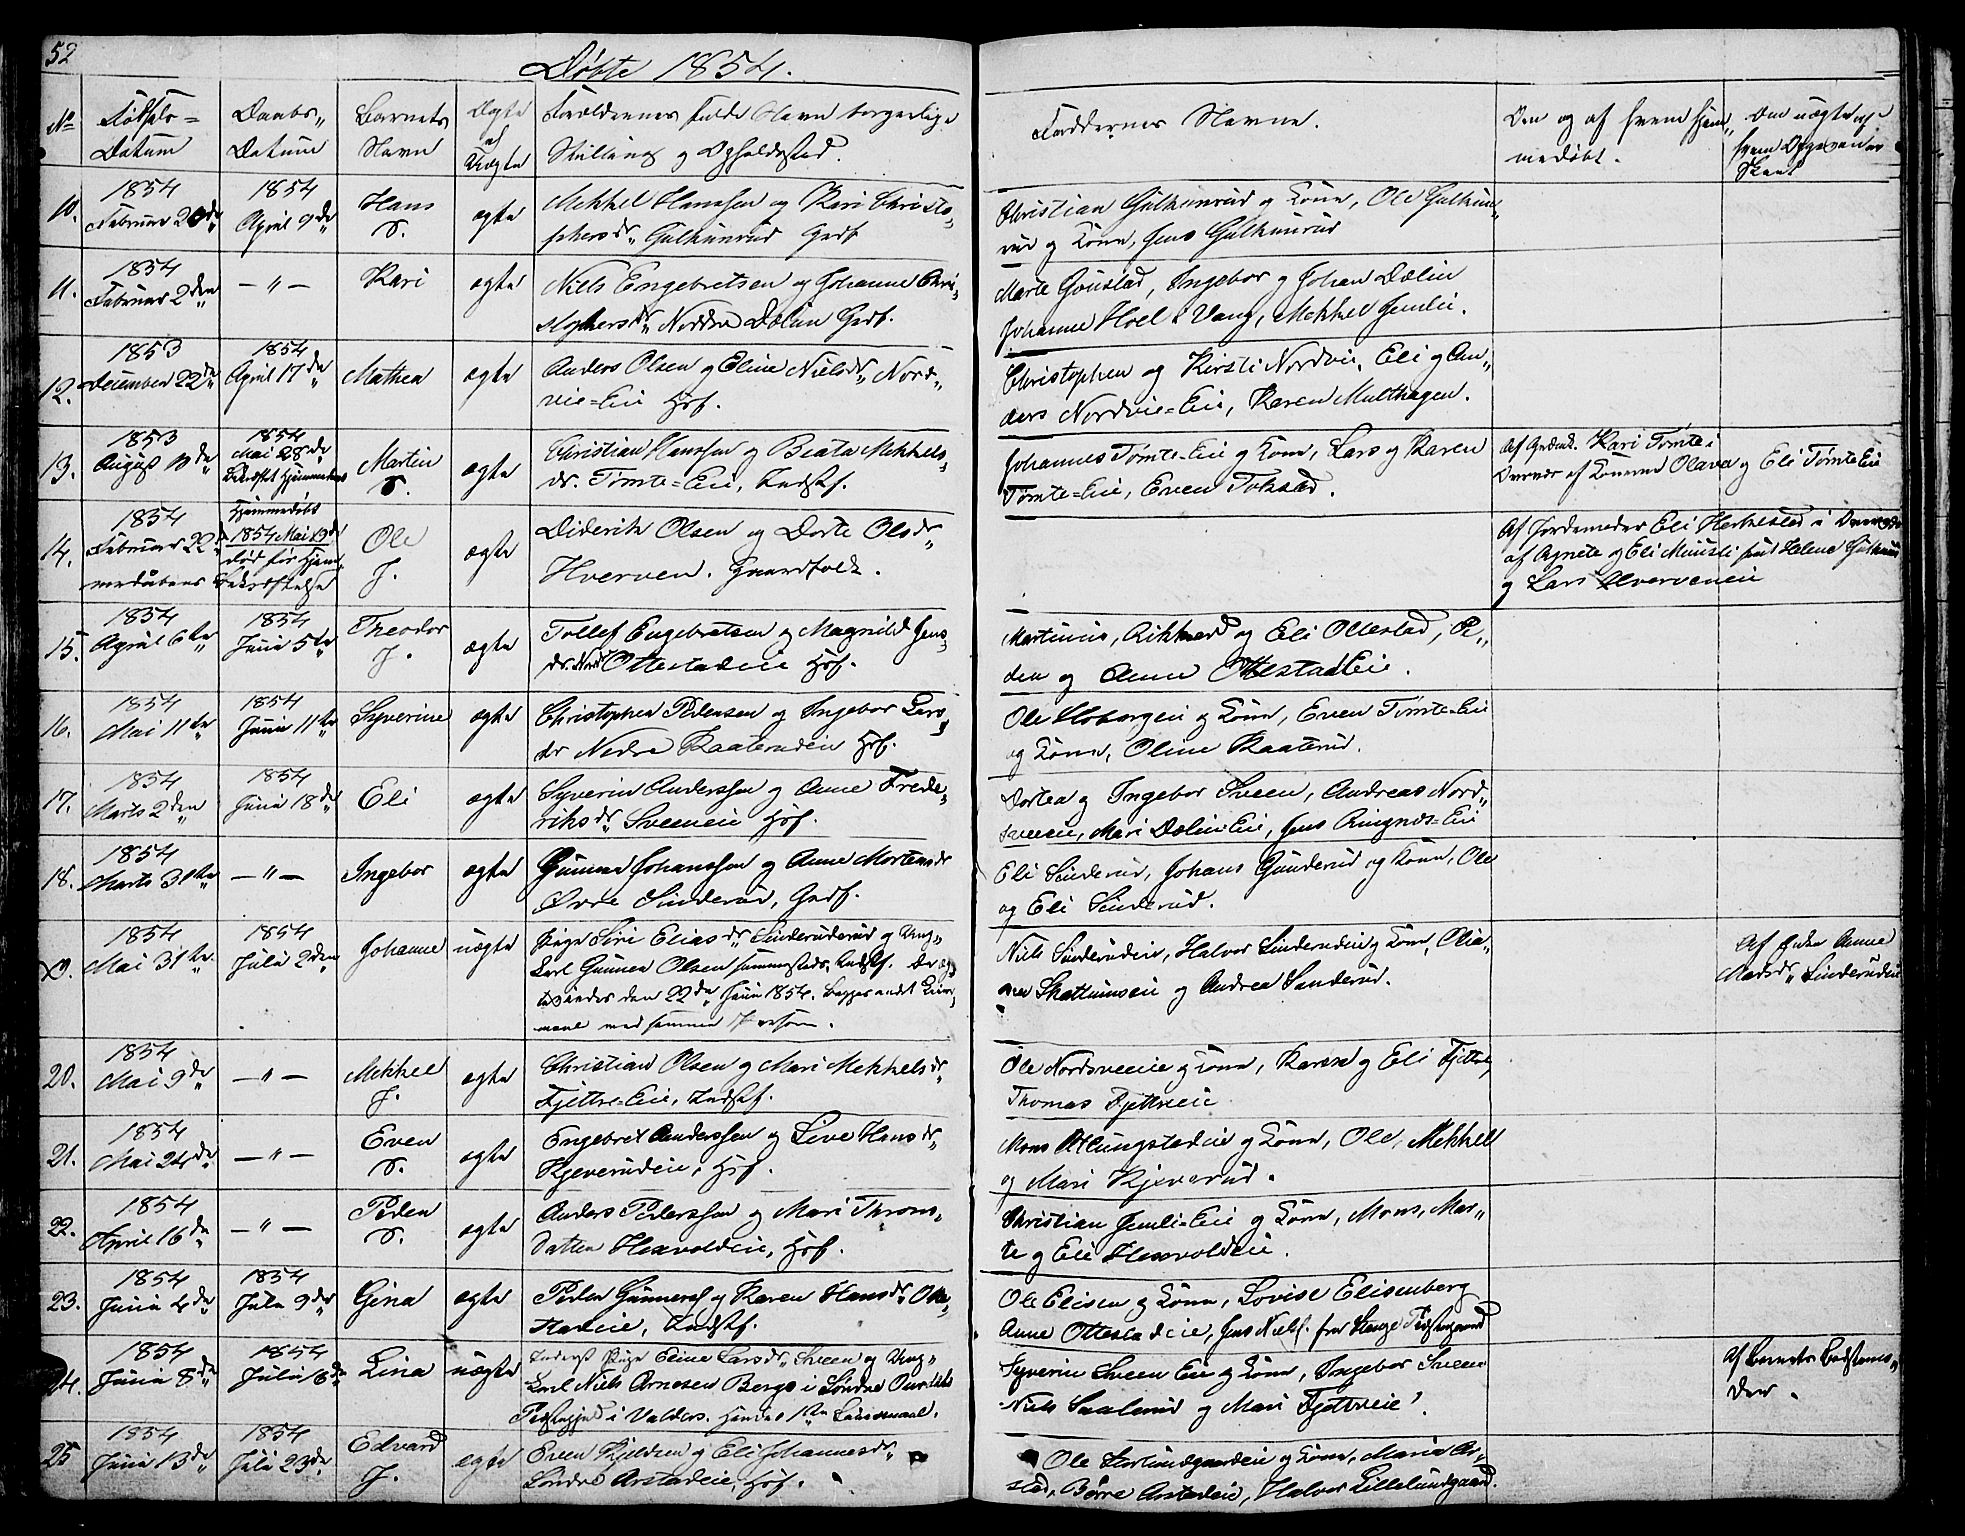 52
Døbte 1854.
No Fødsels= Datum
Daabs„ Datum
Barnets Navn
Ægte el Uægte
Forældrenes fulde Navn borgerlige Stilling og Opholdssted.
Faddernes Navne.
Om og af hvem hjem„ medøbt.
10. 1854 Februar 20de 1854 April 9de Hans ægte Mekkel Hanssen og Kari Christo„
phersdr. Gulhunrud Grdf
Christian Gulhunrud og Kone, Ole Gulhun„
rud og Kone, Jens Gulhunrud
11. 1854 Februar 2den —"— Kari ægte Niels Engebretsen og Johanne Chri„
stophersdr. Nordre Dælin Grdf.
Marte Gonstad, Ingebor og Johan Dælin
Johanne Hoel i Vang, Mekkel Jemlie.
12. 1853 December 22de 1854 April 17de Mathea ægte Anders Olsen og Eline Nielsdr. Nord„
vie=Eie Hsf.
Christopher og Kirsti Nordvie, Eli og An„
ders Nordvie=Eie, Karen Multhagen.
13. 1853 August 1854 Mai 28de Martin ægte Christian Hanssen og Beata Mekkels„
dr. Tomte=Eie, Indstf.
Johannes Tomte-Eie og Kone, Lars og Karen
Tomte=Eie, Even Tokstad.
Kari Tomte i
af Konerne Olava og Eli Tomte Eie
14. 1854 Februar 22de 1854 Mai død før Hjem„
medaabens Bekræftelse
Ole J. ægte Diderik Olsen og Dorte Olsdr.
Hverven. Gaardfolk.
Af Jordemoder Eli Herkestad i
af Agnete og Eli
og Lars Hverveneie
15. 1854 April 6te 1854 Juni 5te Theodor J. ægte Tollef Engebretsen og Magnild Jens„
dr. Ottestadeie Hsf.
Martinus, Rikhard og Eli Ottestad, Pe„
der og Anne Ottestadeie.
16. 1854 Mai 11te 1854 Juni 11te Syverine ægte Christopher Pedersen og Ingebor Lars„
dr Nedre Kaaterudeie Hsf.
Ole Hobergeie og Kone, Even Tomte-Eie
og Kone, Oline Kaaterud.
17. 1854 Marts 2den 1854 Juni 18de Eli ægte Syverin Anderssen og Anne Frede„
riksdr. Sveeneie Hsf.
Dortea og Ingebor Sveen, Andreas Nord„
sveeie, Mari Dælin Eie, Jens Ringnes-Eie
18. 1854 Marts 31te —"— Ingebor ægte Gunner Johanssen og Anne Mortensdr
Øvre Sinderud, Grdf.
Eli Sinderud, Johans Gunderud og Kone, Ole
og Eli Sinderud.
19. 1854 Mai 31te 1854 Juli 2den Johanne uægte Pige Siri Eliasdr. Sinderuderud og Ung„
karl Gunner Olsen sammesteds, Indstf. De æg„
tevies den 22de Juni 1854. Begges andet Leier„
maal med samme Person.
Niels Sinderudeie, Halvor Sinderudeie og Kone, Olia„
ne Skattumseie og Andrea Sanderud.
Af Enken Anne
Madsdr. Sinderudeie
20. 1854 Mai 9de —"— Mekkel J. ægte Christian Olsen og Mari Mekkelsdr.
Fjettre=Eie, Indstf.
Ole Nordsveeie og Kone, Karen og Eli Fjettre,
Thomas Fjettreeie
21. 1854 Mai 24de —"— Even ægte Engebret Anderssen og Live Hansdr.
Kjeverudeie, Hsf.
Mons Atlungstadeie og Kone, Ole, Mekkel
og Mari Kjeverud.
22. 1854 April 16de —"— Peder ægte Anders Pederssen og Mari Throns„
datter Hexvoldeie, Hsf.
Christian Jemli=Eie og Kone, Mons, Mar„
te og Eli Hexvoldeie.
23. 1854 Juni 4de 1854 Juli 9de Gina ægte Peder Gunnersf og Karen Hansdr. Otte„
stadeie, Indstf.
Ole Elisen og Kone, Lovise Elisenberg
Anne Ottestadeie, Jens Nielsf. fra Stange Præstegaard
24. 1854 Juni 8de 1854 Juli 16de Lina uægte Indergst Pige Eline Larsdr. Sveen og Ung„
karl Niels Arnesen Berge i Søndre Ourdals
Præstegjeld i Valders. Hendes 1ste Leiermaal.
Syverin Sveen Eie og Kone, Ingebor Sveen
Niels Saalerud og Mari Fjettreeie.
Af Barnets Bedstemo„
der.
25 1854 Juni 13de 1854 Juli 23de Edvard J. ægte Even Kjeldsen og Eli Johannesdr.
Søndre Arstadeie, Hsf.
Ole Storlundgaardeie og Kone, Maria Ar„
stad, Børre Arstadeie, Halvor Lillelundgaard.